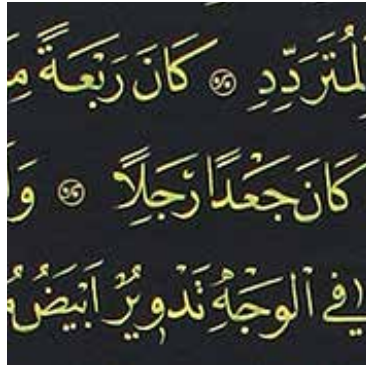 لْمُتَرَدِّدِ كَانَ رَبْعَةً مِ
كَانَ جَعْدًا رَجِلًا وَلَ
فِي الْوَجْهِ تَدْوِيرٌ اَبْيَضُ